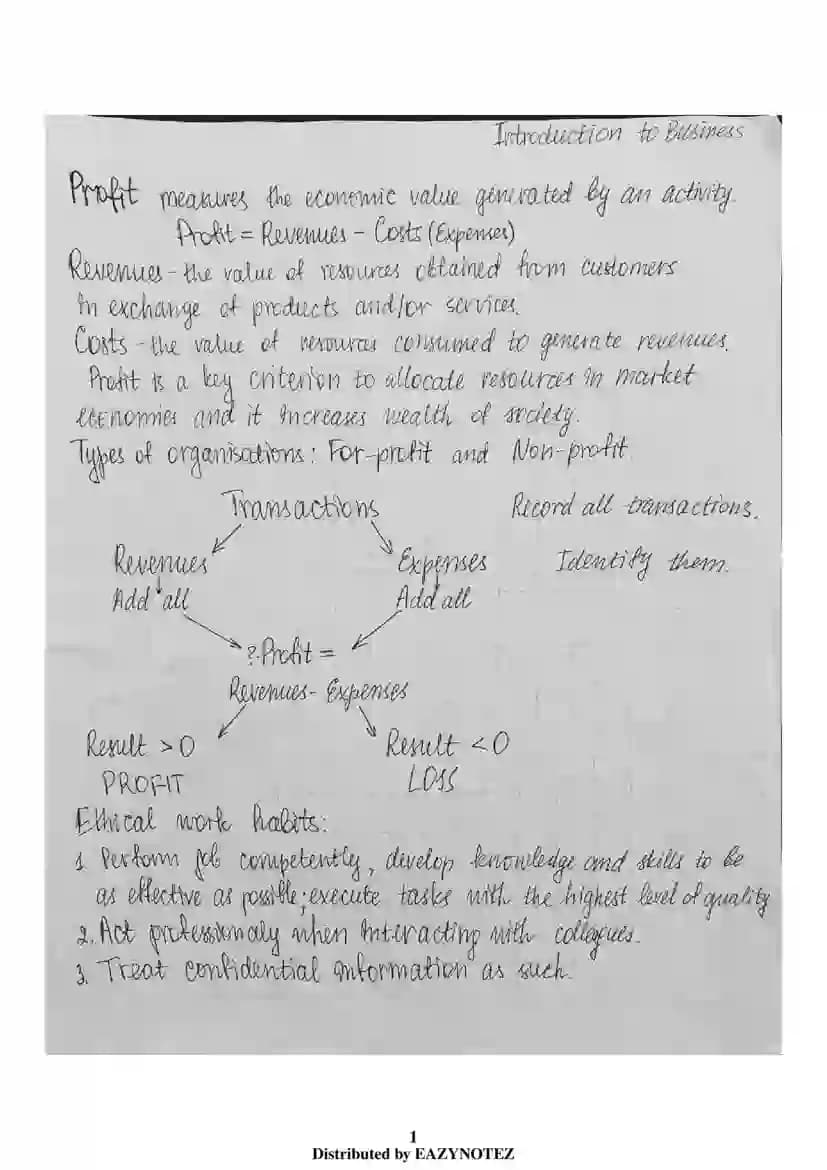 Introduction to Business
Profit measures the economic value generated by an activity.
Profit = Revenues - Costs (Expenses)
Revenues - the value of resources obtained from customers
in exchange of products and/or services.
Costs - the value of resources consumed to generate revenues.
Profit is a key criterion to allocate resources in market
economies and it increases wealth of society.
Types of organisations: For-profit and Non-profit.
Transactions Record all transactions.
Revenues Expenses Identify them.
Add all Add all
? Profit =
Revenues - Expenses
Result > 0 Result < 0
PROFIT LOSS
Ethical work habits:
1. Perform job competently, develop knowledge and skills to be
as effective as possible; execute tasks with the highest level of quality
2. Act professionaly when interacting with collegues.
3. Treat confidential information as such.
1
Distributed by EAZYNOTEZ